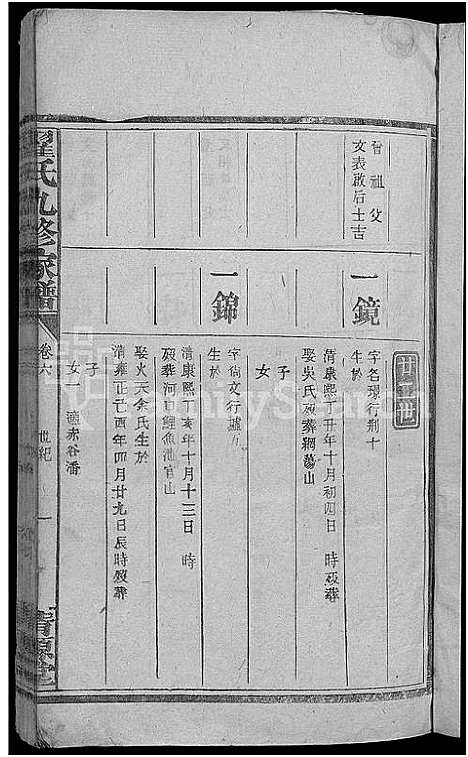 廿三世
曾祖父
文表啟后士吉
一鏡
字名環行荆十
生於
清康熙丁丑年十月初四日 時歿葬
娶吳氏歿葬綱形山
子
女
一錦
字尚文行攄九
生於
清康熙丁亥年十月十三日 時
歿葬河口鯉魚池官山
娶火天余氏生於
清雍正己酉年四月廿九日辰時歿葬
子
女一 適赤谷潘
翟氏九修家譜
卷六
世紀
一
FamilySearch